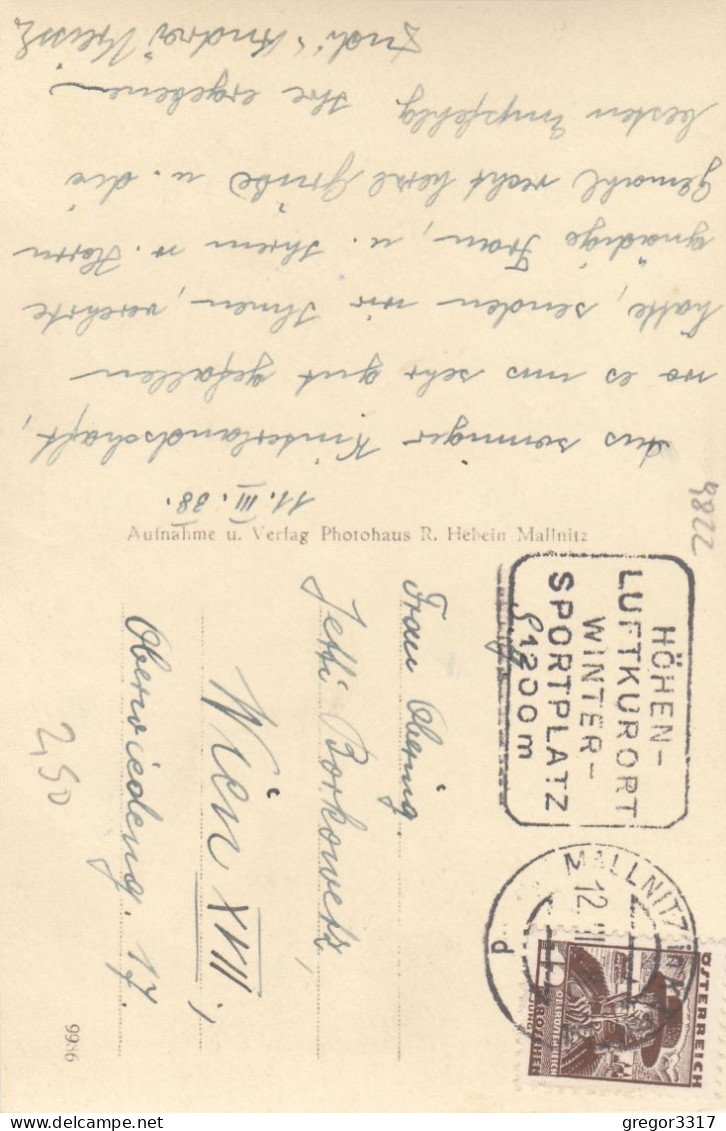 11. III. 38.
Aus sonniger Kinderlandschaft,
wo es uns sehr gut gefallen
hatte, senden wir Ihnen, verehrte
gnädige Frau, u. Ihrem w. Herrn
Gemahl recht herzl Grüße u. die
besten Empfehlg. Ihre ergebenen
Aufnahme u. Verlag Photohaus R. Hebein Mallnitz
9822
HÖHEN-
LUFTKURORT
WINTER-
SPORTPLATZ
1200 m
MALLNITZ
12. III
ÖSTERREICH
OBERÖSTERREICH
GROSCHEN
Frau Obering
Jetti Borkowetz,
Wien XVII,
Oberwiedeng. 17.
2,50
9986
gregor3317